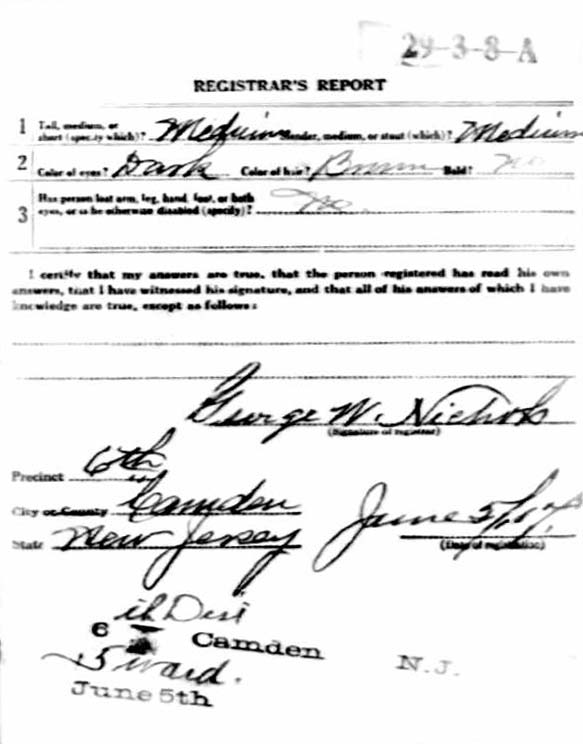 29-3-8-A
REGISTRAR'S REPORT
1 Tall, medium, or short (specify which)? Medium Slender, medium, or stout (which)? Medium
2 Color of eyes? Dark Color of hair? Brown Bald? No
3 Has person lost arm, leg, hand, foot, or both eyes, or is he otherwise disabled (specify)? No
I certify that my answers are true, that the person registered has read his own
answers, that I have witnessed his signature, and that all of his answers of which I have
knowledge are true, except as follows:
George W. Nichols
(Signature of registrar)
Precinct 6th
City or County Camden
State New Jersey
June 5/17
(Date of registration)
6 th Dist
Camden N.J.
5 ward.
June 5th